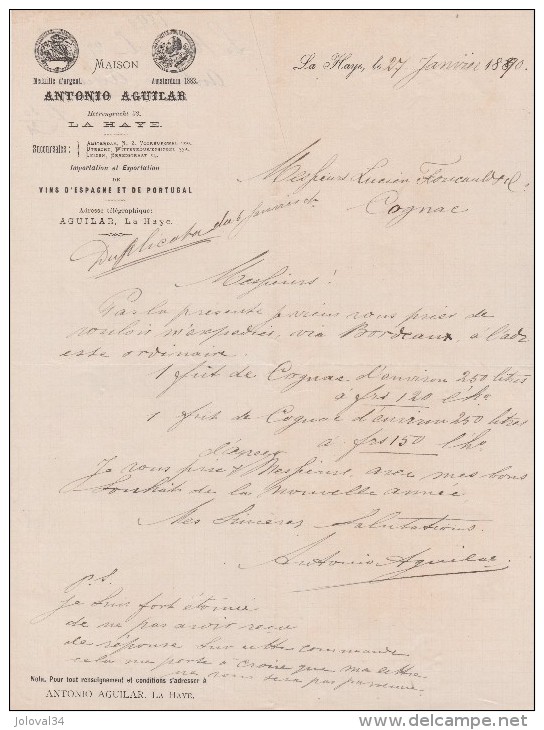 MAISON
Medaille d'argent. Amsterdam 1883.
ANTONIO AGUILAR
Heerengracht 22.
LA HAYE.
Succursales:
AMSTERDAM, N. Z. VOORBURGWAL
UTRECHT, WITTEVROUWENSINGEL
LEIDEN,
Importation et Exportation
DE
VINS D'ESPAGNE ET DE PORTUGAL
Adresse télégraphique:
AGUILAR, La Haye.
La Haye, le 27 Janvier 1890.
Messieurs Lucien Foucauld & C.
Cognac
Duplicata du
Messieurs!
Par la presente je viens vous prier de
vouloir m'expedier, via Bordeaux, à l'adr
esse ordinaire.
1 fût de Cognac d'environ 250 litres
à frs 120 l'ho
1 fût de Cognac d'environ 250 litres
à frs 150 l'ho
Je vous prie d'agréer Messieurs, avec mes bons
souhaits de la Nouvelle année
Mes Sinceres Salutations.
Antonio Aguilar.
P.S.
Je suis fort étonné
de ne pas avoir reçu
de réponse sur cette commande
cela me porte à croire que ma lettre
ne vous sera pas parvenue.
Nota. Pour tout renseignement et conditions s'adresser à
ANTONIO AGUILAR, LA HAYE.
joloval34
www.delcampe.net